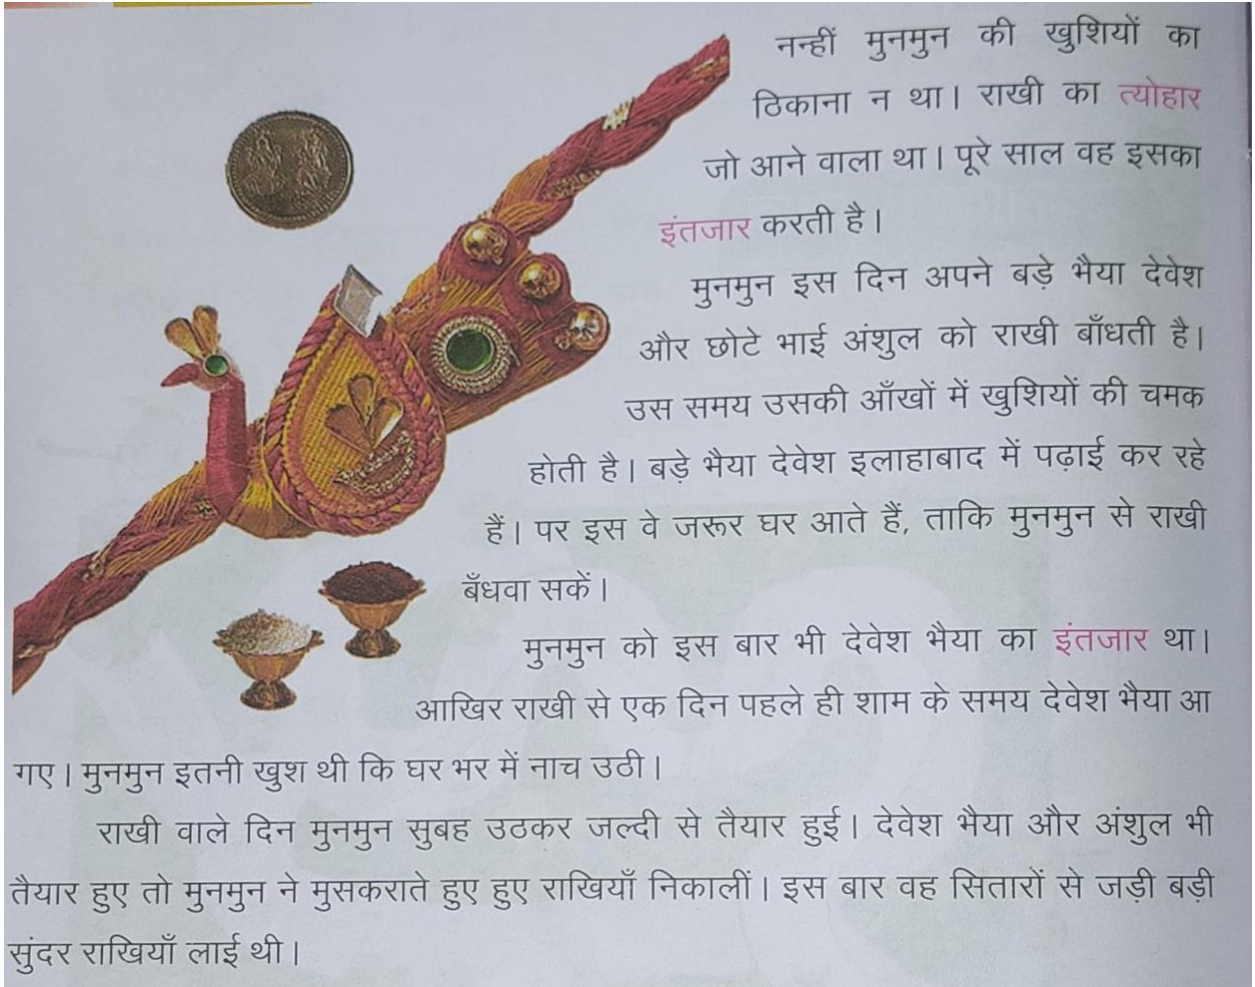 नन्हीं मुनमुन की खुशियों का
ठिकाना न था। राखी का त्योहार
जो आने वाला था। पूरे साल वह इसका
इंतजार करती है।
मुनमुन इस दिन अपने बड़े भैया देवेश
और छोटे भाई अंशुल को राखी बाँधती है।
उस समय उसकी आँखों में खुशियों की चमक
होती है। बड़े भैया देवेश इलाहाबाद में पढ़ाई कर रहे
हैं। पर इस वे जरूर घर आते हैं, ताकि मुनमुन से राखी
बँधवा सकें।
मुनमुन को इस बार भी देवेश भैया का इंतजार था।
आखिर राखी से एक दिन पहले ही शाम के समय देवेश भैया आ
गए। मुनमुन इतनी खुश थी कि घर भर में नाच उठी।
राखी वाले दिन मुनमुन सुबह उठकर जल्दी से तैयार हुई। देवेश भैया और अंशुल भी
तैयार हुए तो मुनमुन ने मुसकराते हुए हुए राखियाँ निकालीं। इस बार वह सितारों से जड़ी बड़ी
सुंदर राखियाँ लाई थी।